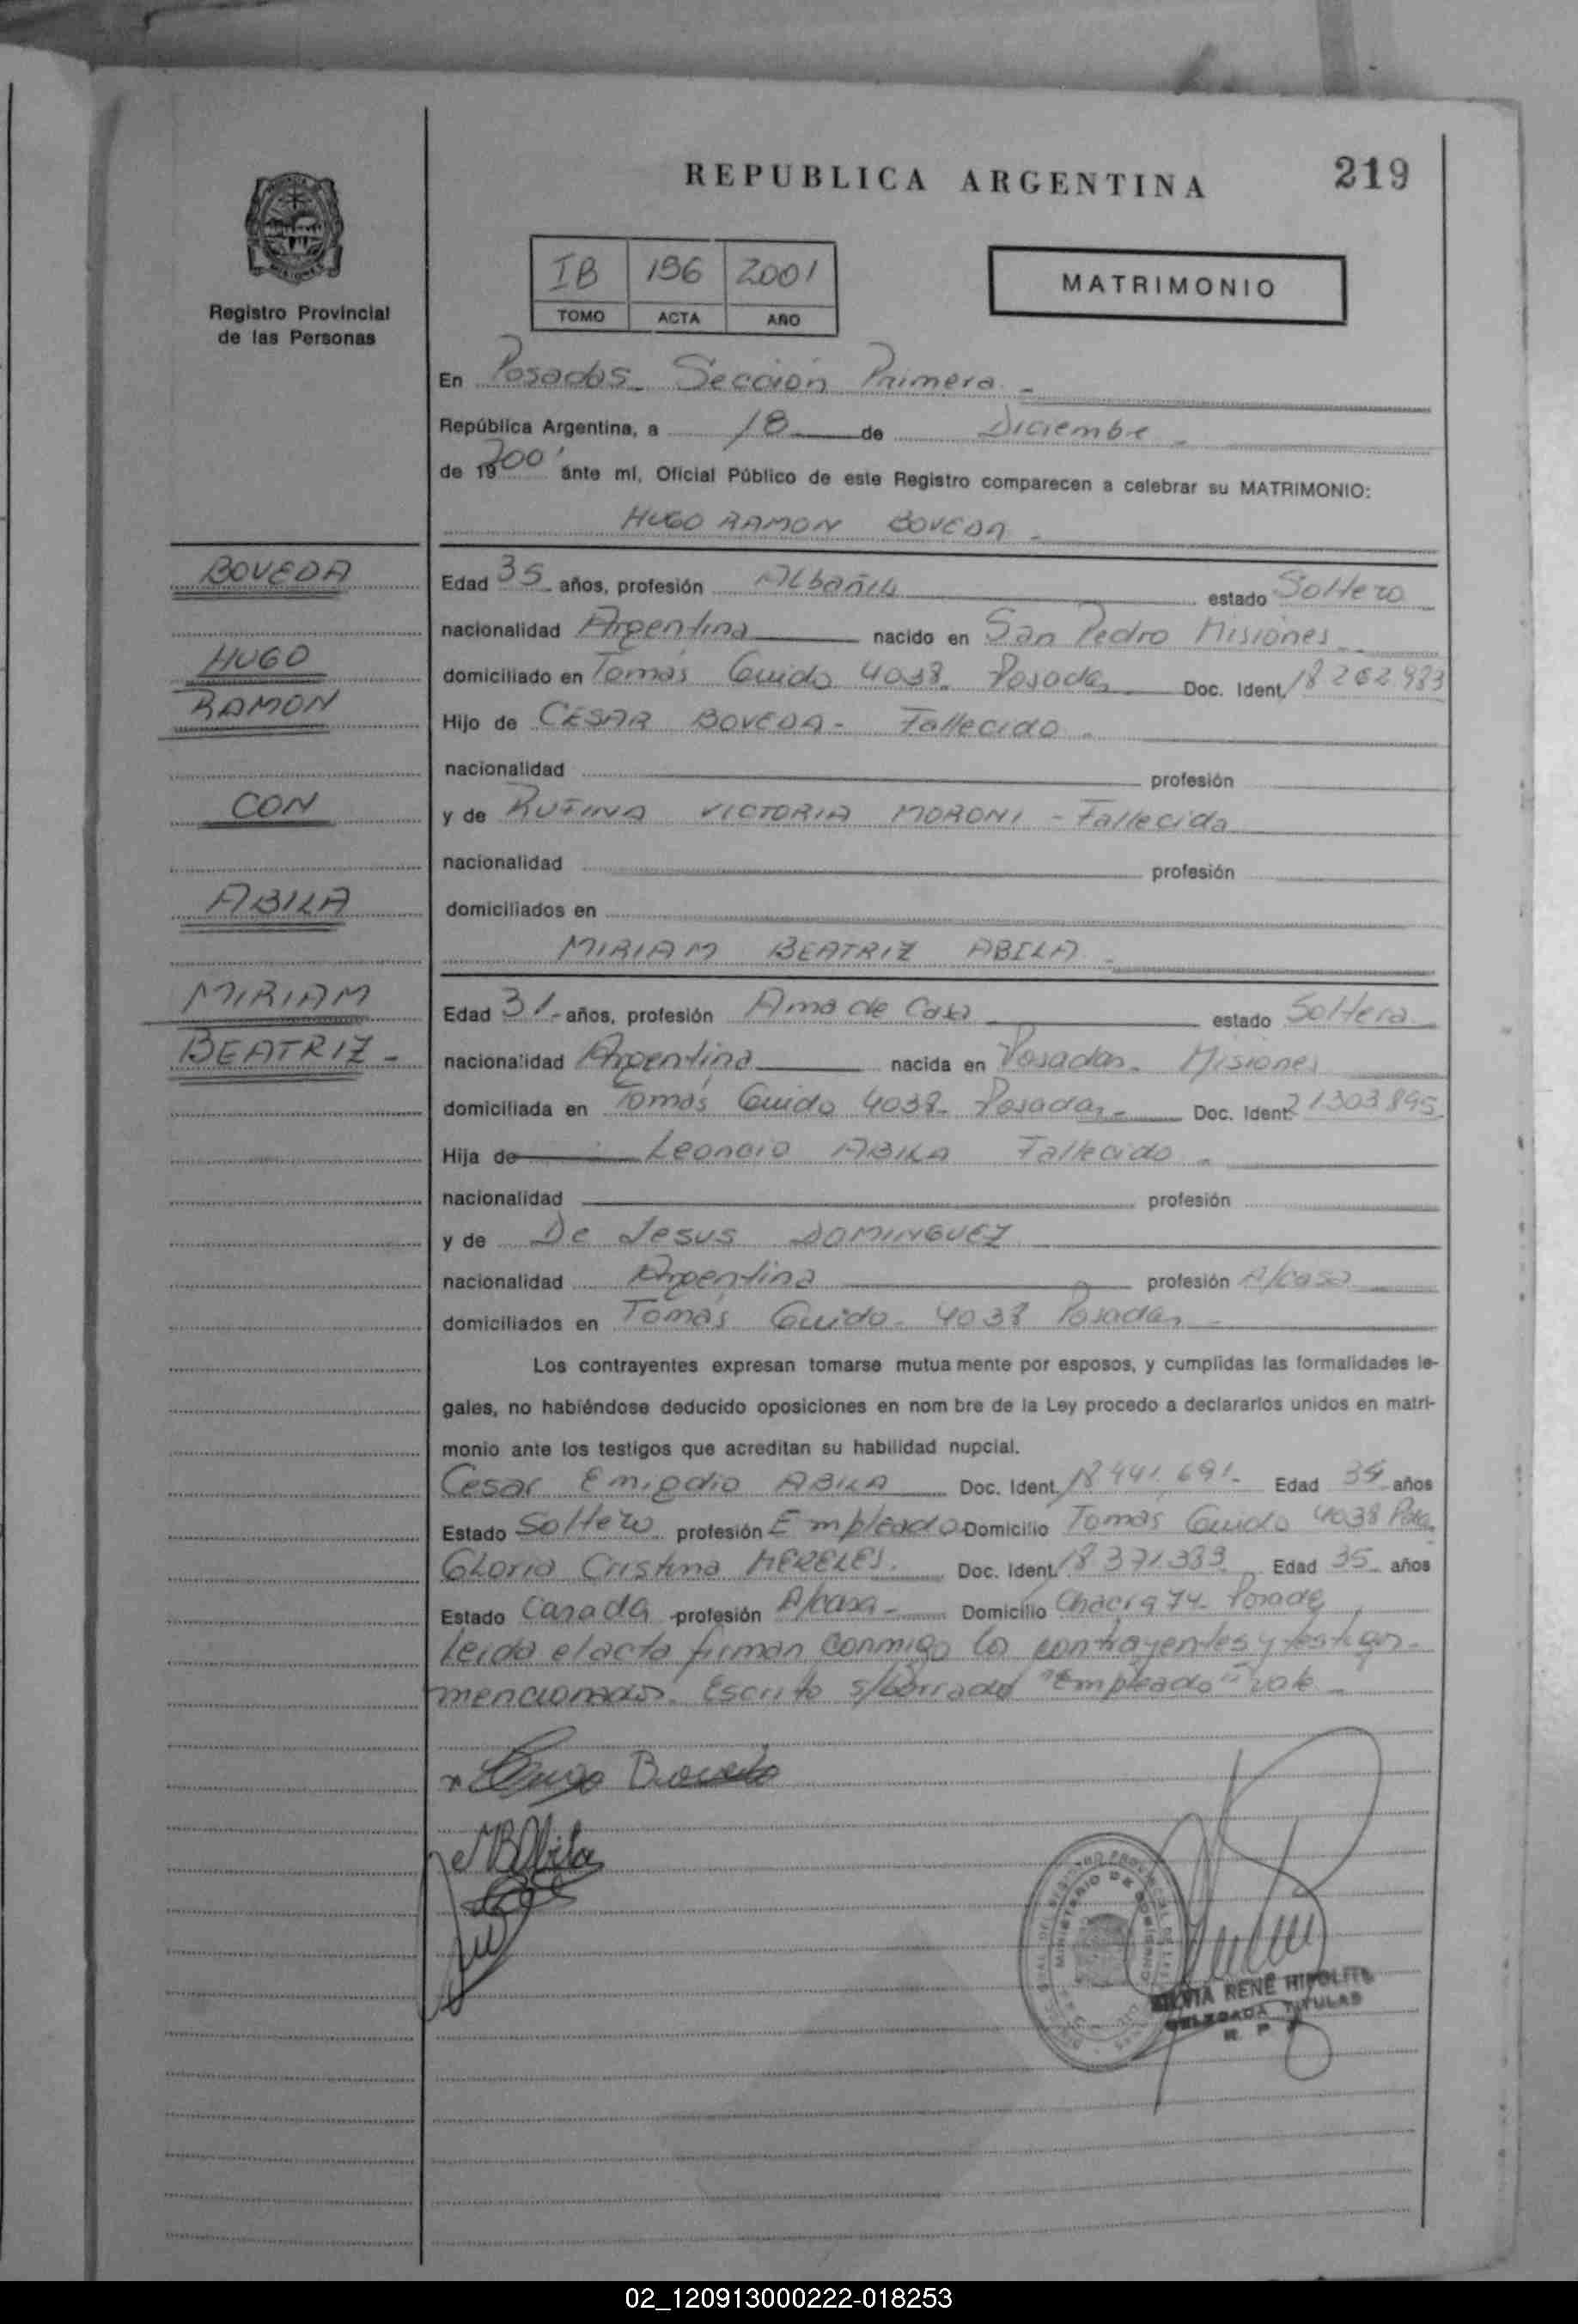 REPUBLICA ARGENTINA
219
Registro Provincial
de las Personas
IB 196 2001
TOMO ACTA AÑO
MATRIMONIO
En Posadas - Sección Primera -
República Argentina, a 18 de Diciembre -
de 19 2001 ante mí, Oficial Público de este Registro comparecen a celebrar su MATRIMONIO:
HUGO RAMON BOVEDA -
BOVEDA
HUGO
RAMON
CON
ABILA
MIRIAM
BEATRIZ -
Edad 35 años, profesión Albañil estado Soltero
nacionalidad Argentina nacido en San Pedro Misiones
domiciliado en Tomás Guido 4038 Posadas Doc. Ident. 18262983
Hijo de CESAR BOVEDA - Fallecido -
nacionalidad profesión
y de RUFINA VICTORIA MORONI - Fallecida
nacionalidad profesión
domiciliados en
MIRIAM BEATRIZ ABILA -
Edad 31 - años, profesión Ama de Casa estado Soltera
nacionalidad Argentina nacida en Posadas - Misiones
domiciliada en Tomás Guido 4038 - Posadas - Doc. Ident. 21303895
Hija de Leoncio ABILA Fallecido -
nacionalidad profesión
y de De Jesus DOMINGUEZ
nacionalidad Argentina profesión A/casa
domiciliados en Tomás Guido - 4038 Posadas -
Los contrayentes expresan tomarse mutua mente por esposos, y cumplidas las formalidades le-
gales, no habiéndose deducido oposiciones en nom bre de la Ley procedo a declararlos unidos en matri-
monio ante los testigos que acreditan su habilidad nupcial.
Cesar Emigdio ABILA Doc. Ident. 18441.691 - Edad 34 años
Estado Soltero profesión Empleado Domicilio Tomás Guido 4038 Pdas
Gloria Cristina MERELES - Doc. Ident. 18371.389 Edad 35 años
Estado Casada profesión A/casa - Domicilio Chacra 74 - Posadas
Leida el acta firman conmigo los contrayentes y testigos -
mencionados. Escrito s/borrado "Empleado" vale -
Hugo Boveda
MBAbila
SILVIA RENÉ HIPOLITO
DELEGADA TITULAR
R. P. P.
02_120913000222-018253